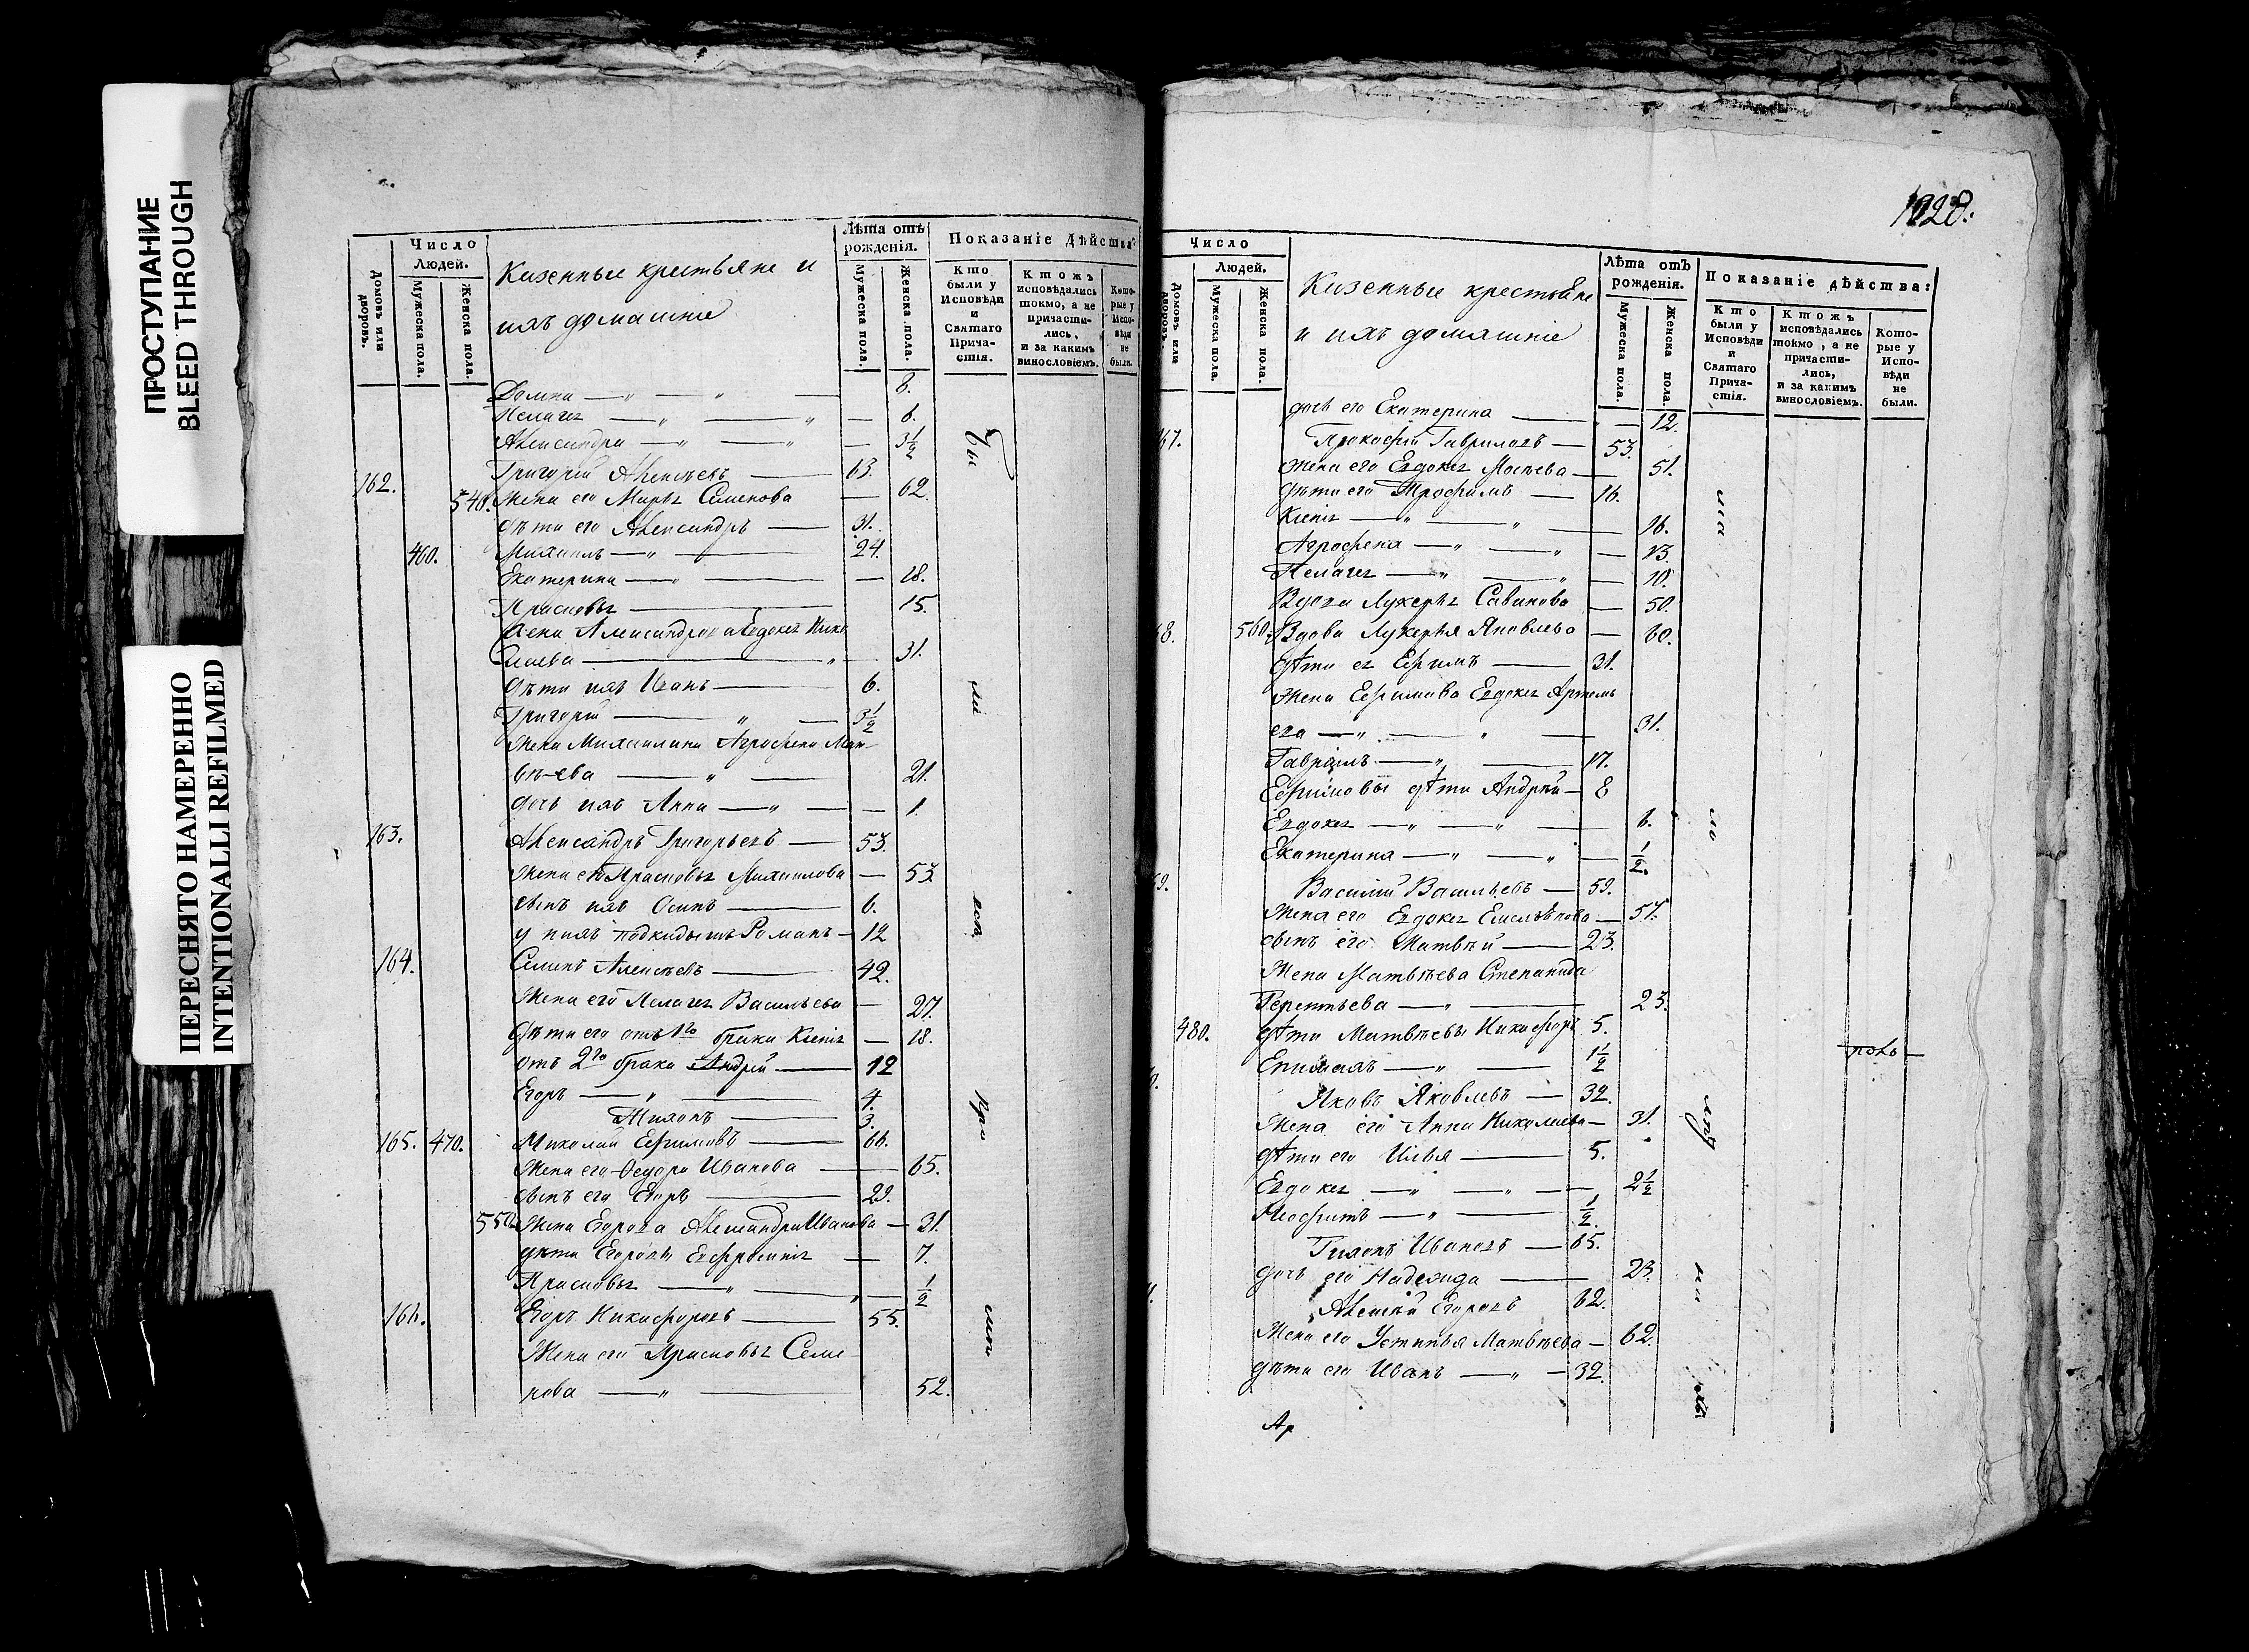 ПРОСТУПАНИЕ
BLEED THROUGH
ПЕРЕСНЯТО НАМЕРЕННО
INTENTIONALLI REFILMED
Домовъ или дворовъ.
Число
Людей.
Мужеска пола.
Женска пола.
Казенные крестьяне и
ихъ домашніе
Лѣта отъ рожденія.
Мужеска пола.
Женска пола.
Показаніе Дѣйства:
Кто были у Исповѣди и Святаго Прича-стія.
Ктожъ исповѣдались токмо, а не причасти-лись, и за какимъ винословіемъ.
Кото-рые у Испо-вѣди не были.
Домна — „ — „ — 8.
Пелагея — „ — „ — 6.
Александра — „ — „ — 3½
162. Григорій Алексѣевъ — 63.
540. Жена его Марья Семенова — 62.
дѣти его Александръ — 31.
460. Михаилъ — „ — 24.
Екатерина — „ — 18.
Прасковья — 15.
Жена Александрова Евдокея Нико
лаева — „ — 31.
дѣти ихъ Иванъ — 6.
Григорій — „ — 3½
Жена Михаилина Агрофена Мат-
вѣева — „ — 21.
дочь ихъ Анна — „ — 1.
163. Александръ Григорьевъ — 53.
Жена его Прасковья Михаилова — 53
сынъ ихъ Осипъ — 6.
у нихъ подкидышъ Романъ — 12
164. Семенъ Алексѣевъ — 42.
Жена его Пелагея Васильева — 27.
Дѣти его отъ 1го брака Ксенія — 18.
отъ 2го брака Андрей — 12
Егоръ — „ — 4.
Тихонъ — 3.
165. 470. Миколай Ефимовъ — 66.
Жена его Федора Иванова — 65.
сынъ его Егоръ — 29.
550. Жена Егорова Александра Иванова — 31.
дѣти Егоровы Евфросинія — 7.
Прасковья — „ — ½
166. Егоръ Никифоровъ — 55.
Жена его Прасковья Семе
нова — „ — 52.
1828.
Домовъ или дворовъ.
Число
Людей.
Мужеска пола.
Женска пола.
Казенные крестьяне
и ихъ домашніе
Лѣта отъ рожденія.
Мужеска пола.
Женска пола.
Показаніе дѣйства:
Кто были у Исповѣди и Святаго Прича-стія.
Ктожъ исповѣдались токмо, а не причасти-лись, и за какимъ винословіемъ.
Кото-рые у Испо-вѣди не были.
дочь его Екатерина — 12.
67. Прокофій Гавриловъ — 53.
Жена его Евдокея — 51.
дѣти его Трофимъ — 16.
Ксенія — „ — „ — 16.
Агрофена — „ — „ — 13.
Пелагея — „ — „ — 10.
Вдова Лукерья Савинова — 50.
68. 560. Вдова Лукерія Яковлева — 60.
дѣти ея Ефимъ — 31.
Жена Ефимова Евдокея Артемь
ева — „ — „ — 31.
Гавріилъ — „ — 17.
Ефимовы дѣти Андрей — 8
Евдокея — „ — „ — 6.
Екатерина — „ — „ — ½.
69. Василій Васильевъ — 59.
Жена его Евдокея — 57.
сынъ его Матвѣй — 23.
Жена Матвѣева Степанида
Терентьева — „ — 23.
480. дѣти Матвѣевы Никифоръ 5.
— „ — 1½
Яковъ Яковлевъ — 32.
Жена его Анна Николаева — 31.
дѣти его Илья — 5.
Евдокея — „ — „ — 2½
— „ — ½.
Тихонъ Ивановъ — 65.
дочь его Надежда — 23.
Алексѣй Егоровъ 62.
Жена его Устинья Матвѣева — 62.
дѣти его Иванъ — „ — 32.
Ар